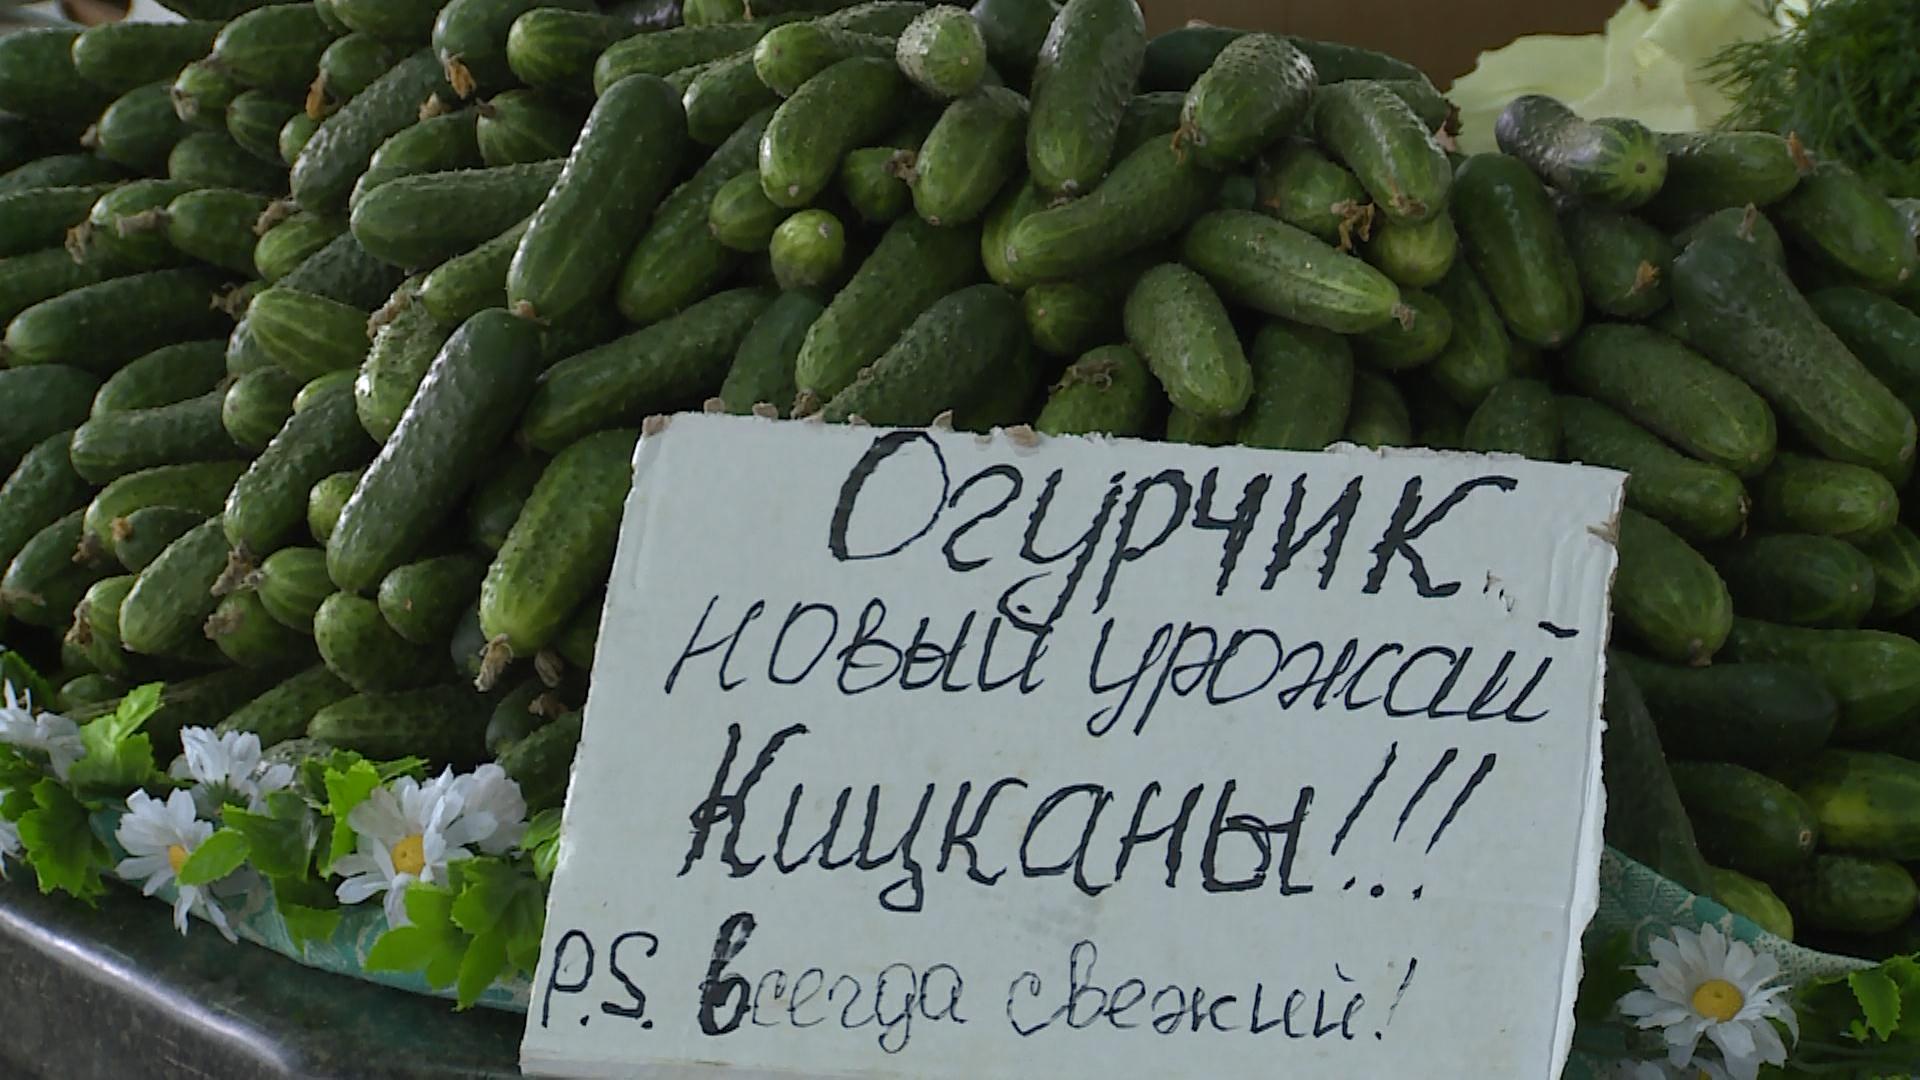 Огурчик
новый урожай
Кицканы!!!
P.S. Всегда свежий!